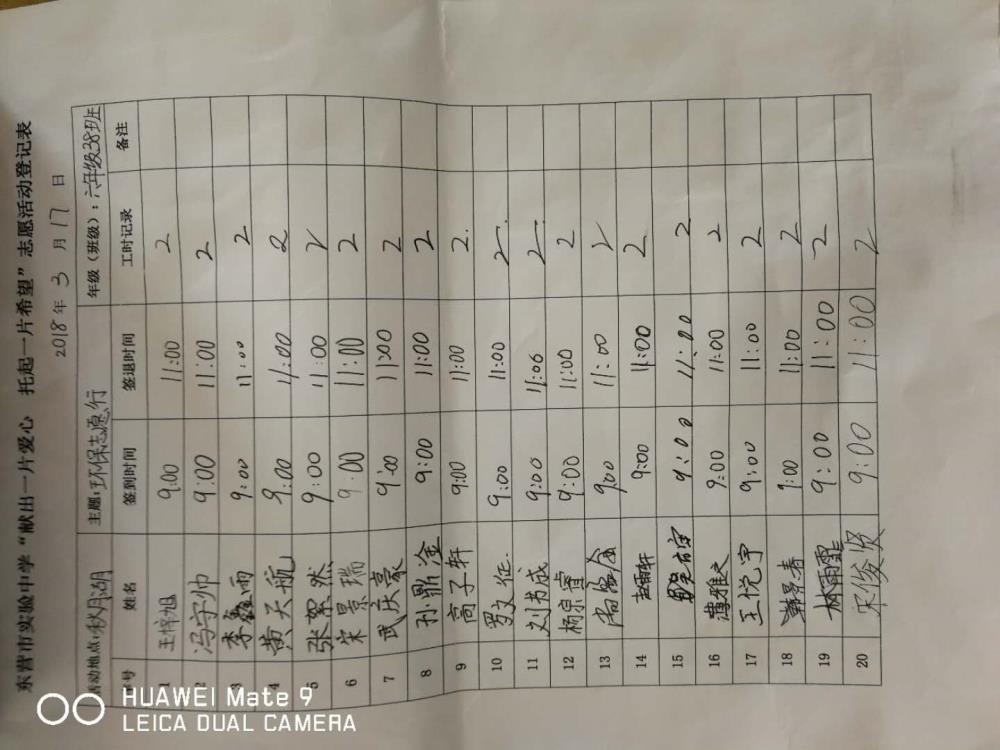 东营市实验中学“献出一片爱心 托起一片希望”志愿活动登记表
2018年 3 月 17 日
活动地点:秋月湖 主题:环保志愿行 年级（班级）:六年级38班
序号 姓名 签到时间 签退时间 工时记录 备注
1 王梓旭 9:00 11:00 2
2 冯宇帅 9:00 11:00 2
3 李鑫雨 9:00 11:00 2
4 黄天航 9:00 11:00 2
5 张絮然 9:00 11:00 2
6 宋景瑞 9:00 11:00 2
7 武庆豪 9:00 11:00 2
8 孙鼎金 9:00 11:00 2
9 高子轩 9:00 11:00 2.
10 罗文征. 9:00 11:00 2.
11 刘书成 9:00 11:06 2.
12 杨宗睿 9:00 11:00 2
13 9:00 11:00 2
14 9:00 11:00 2
15 9:00 11:00 2
16 薄雅文 9:00 11:00 2
17 王悦宇 9:00 11:00 2
18 韩景春 9:00 11:00 2
19 林雨霏 9:00 11:00 2
20 宋俊贤 9:00 11:00 2
HUAWEI Mate 9
LEICA DUAL CAMERA